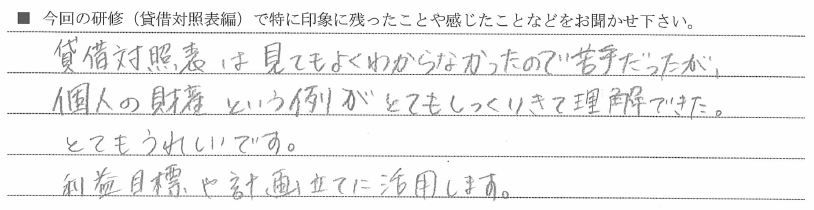 ■ 今回の研修（貸借対照表編）で特に印象に残ったことや感じたことなどをお聞かせ下さい。
貸借対照表は見てもよくわからなかったので苦手だったが、
個人の財産という例がとてもしっくりきて理解できた。
とてもうれしいです。
利益目標や計画立てに活用します。